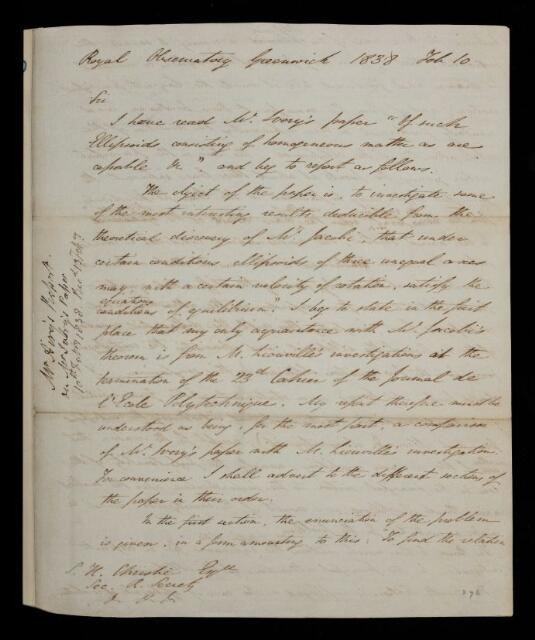 Royal Observatory Greenwich 1838 Feb 10
Sir
I have read Mr. Ivory's paper "Of such
Ellipsoids consisting of homogeneous matter as are
capable &c", and beg to report as follows.
The object of the paper is, to investigate some
of the most interesting results deducible from the
theoretical discovery of Mr. Jacobi, "that under
certain conditions ellipsoids of three unequal axes
may, with a certain velocity of rotation, satisfy the
equations
conditions of equilibrium." I beg to state in the first
place that my only acquaintance with Mr. Jacobi's
theorem is from M. Liouville's investigations at the
termination of the 23d Cahier of the Journal de
l'Ecole Polytechnique. My report therefore must be
understood as being, for the most part, a comparison
of Mr. Ivory's paper with M. Liouville's investigation.
For convenience I shall advert to the different sections of
the paper in their order.
In the first section, the enunciation of the problem
is given, in a form amounting to this: To find the relation
S. H. Christie Esqre
Sec. R. Society
Report
on Mr Ivory's Paper
10th Feby 1838